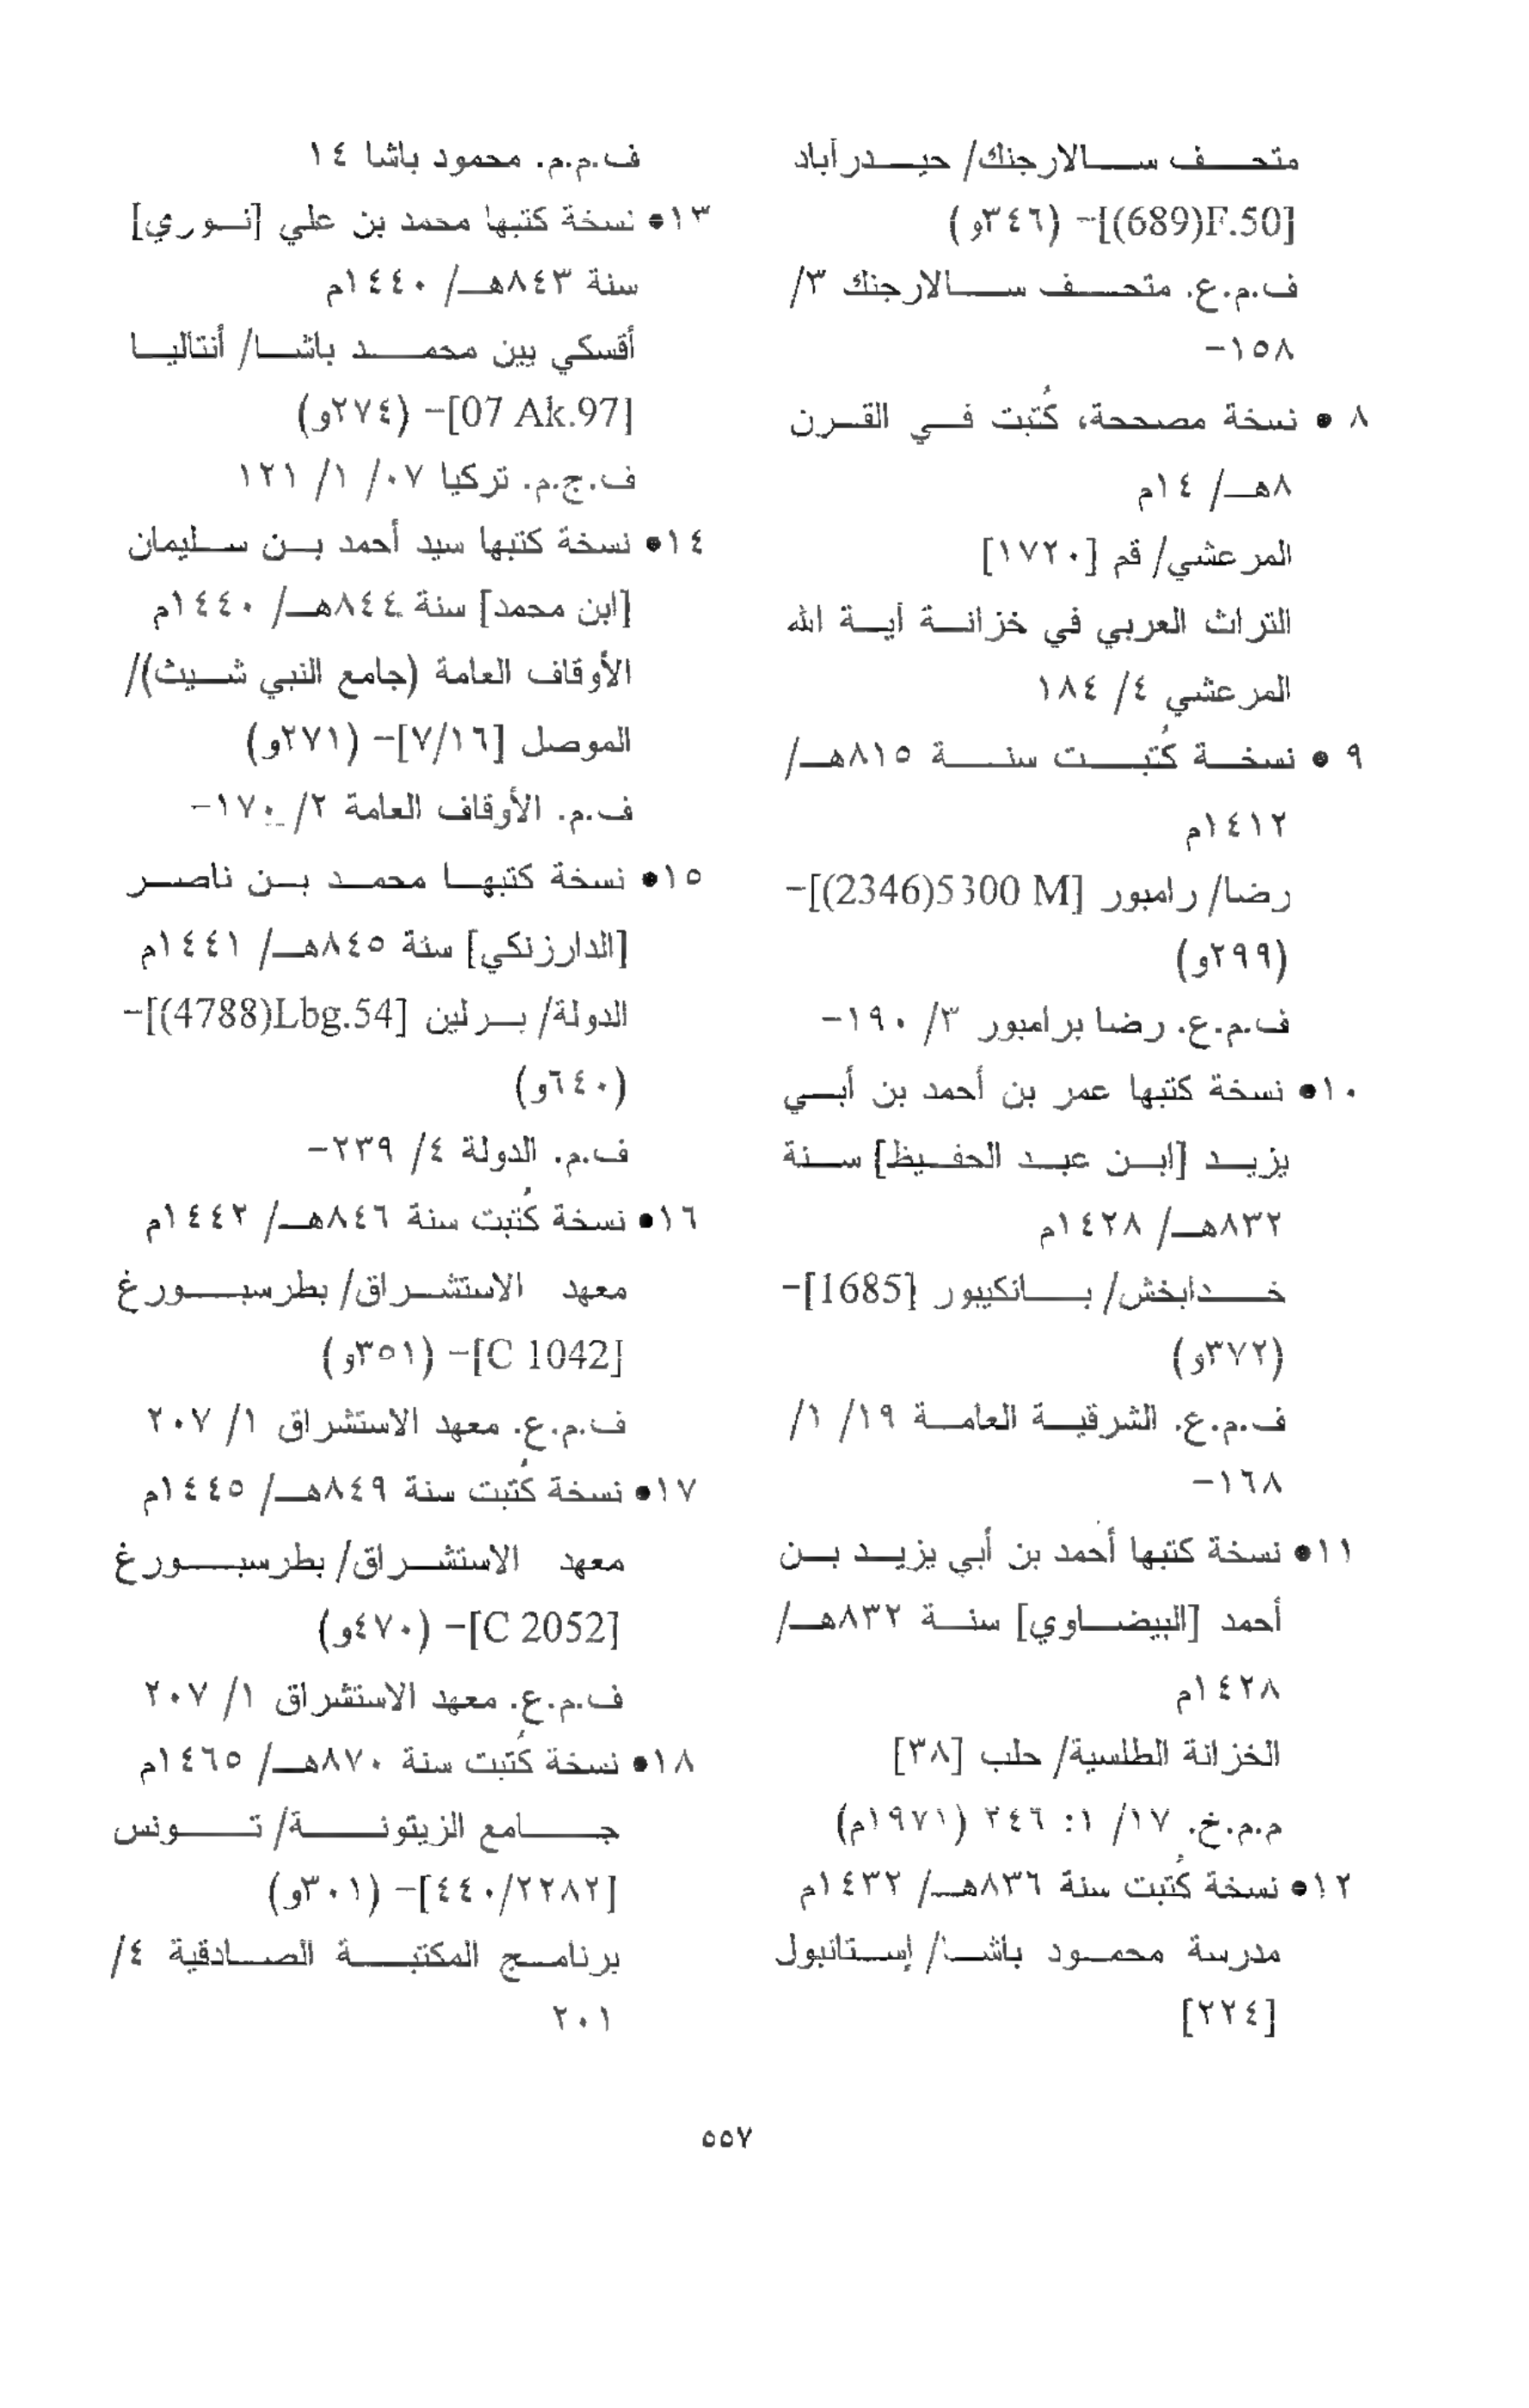 متحف سالارجنك/ حيدرآباد
[689)F.50)]- (٣٤٦و)
ف.م.ع. متحف سالارجنك ٣/
١٥٨-
٨ • نسخة مصححة، كُتبت في القرن
٨هـ/ ١٤م
المرعشي/ قم [١٧٢٠]
التراث العربي في خزانة آية الله
المرعشي ٤/ ١٨٤
٩ • نسخة كُتبت سنة ٨١٥هـ/
١٤١٢م
رضا/ رامبور [2346)5300 M)]-
(٢٩٩و)
ف.م.ع. رضا برامبور ٣/ ١٩٠-
١٠• نسخة كتبها عمر بن أحمد بن أبي
يزيد [ابن عبد الحفيظ] سنة
٨٣٢هـ/ ١٤٢٨م
خدابخش/ بانكيبور [1685]-
(٣٧٢و)
ف.م.ع. الشرقية العامة ١٩/ ١/
١٦٨-
١١• نسخة كتبها أحمد بن أبي يزيد بن
أحمد [البيضاوي] سنة ٨٣٢هـ/
١٤٢٨م
الخزانة الطلسية/ حلب [٣٨]
م.م.خ. ١٧/ ١: ٢٤٦ (١٩٧١م)
١٢• نسخة كُتبت سنة ٨٣٦هـ/ ١٤٣٢م
مدرسة محمود باشا/ إستانبول
[٢٢٤]
ف.م.م. محمود باشا ١٤
١٣• نسخة كتبها محمد بن علي [نوري]
سنة ٨٤٣هـ/ ١٤٤٠م
أقسكي يين محمد باشا/ أنتاليا
[07 Ak.97]- (٢٧٤و)
ف.ج.م. تركيا ٠٧/ ١/ ١٢١
١٤• نسخة كتبها سيد أحمد بن سليمان
[ابن محمد] سنة ٨٤٤هـ/ ١٤٤٠م
الأوقاف العامة (جامع النبي شيث)/
الموصل [٧/١٦]- (٢٧١و)
ف.م. الأوقاف العامة ٢/ ١٧٠-
١٥• نسخة كتبها محمد بن ناصر
[الدارزنكي] سنة ٨٤٥هـ/ ١٤٤١م
الدولة/ برلين [4788)Lbg.54)]-
(٦٤٠و)
ف.م. الدولة ٤/ ٢٣٩-
١٦• نسخة كُتبت سنة ٨٤٦هـ/ ١٤٤٢م
معهد الاستشراق/ بطرسبورغ
[C 1042]- (٣٥١و)
ف.م.ع. معهد الاستشراق ١/ ٢٠٧
١٧• نسخة كُتبت سنة ٨٤٩هـ/ ١٤٤٥م
معهد الاستشراق/ بطرسبورغ
[C 2052]- (٤٧٠و)
ف.م.ع. معهد الاستشراق ١/ ٢٠٧
١٨• نسخة كُتبت سنة ٨٧٠هـ/ ١٤٦٥م
جامع الزيتونة/ تونس
[٤٤٠/٢٢٨٢]- (٣٠١و)
برنامج المكتبة الصادقية ٤/
٢٠١
٥٥٧